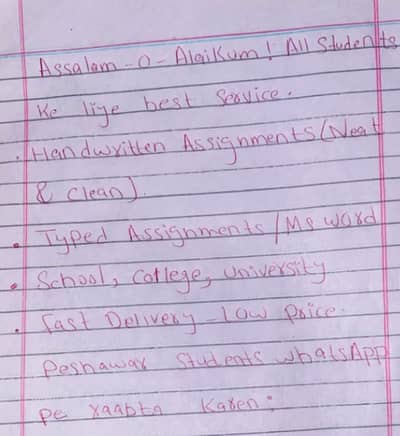 Assalam-o-Alaikum! All Students
Ke liye best Service.
• Handwritten Assignments (Neat
& Clean).
• Typed Assignments / Ms Word
• School, College, University
• Fast Delivery - low price.
Peshawar Students WhatsApp
pe raabta Karen: